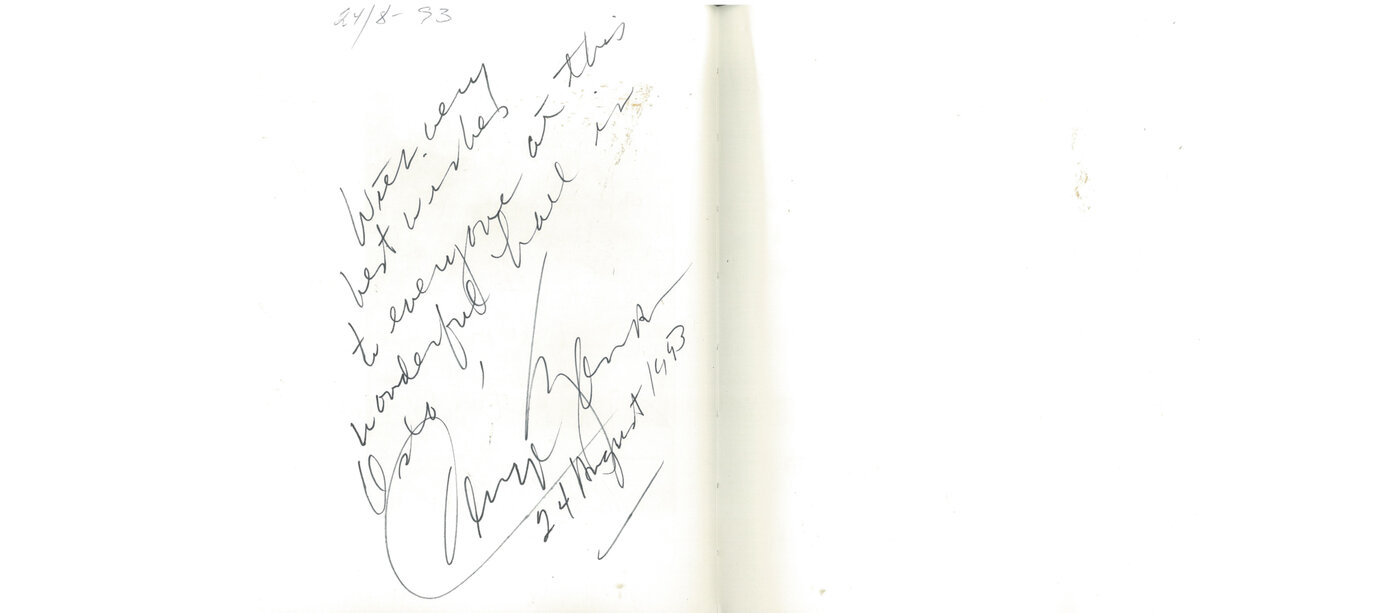 24/8-93
With very
best wishes
to everyone at this
wonderful hall in
Oslo,
George
24 August 1993